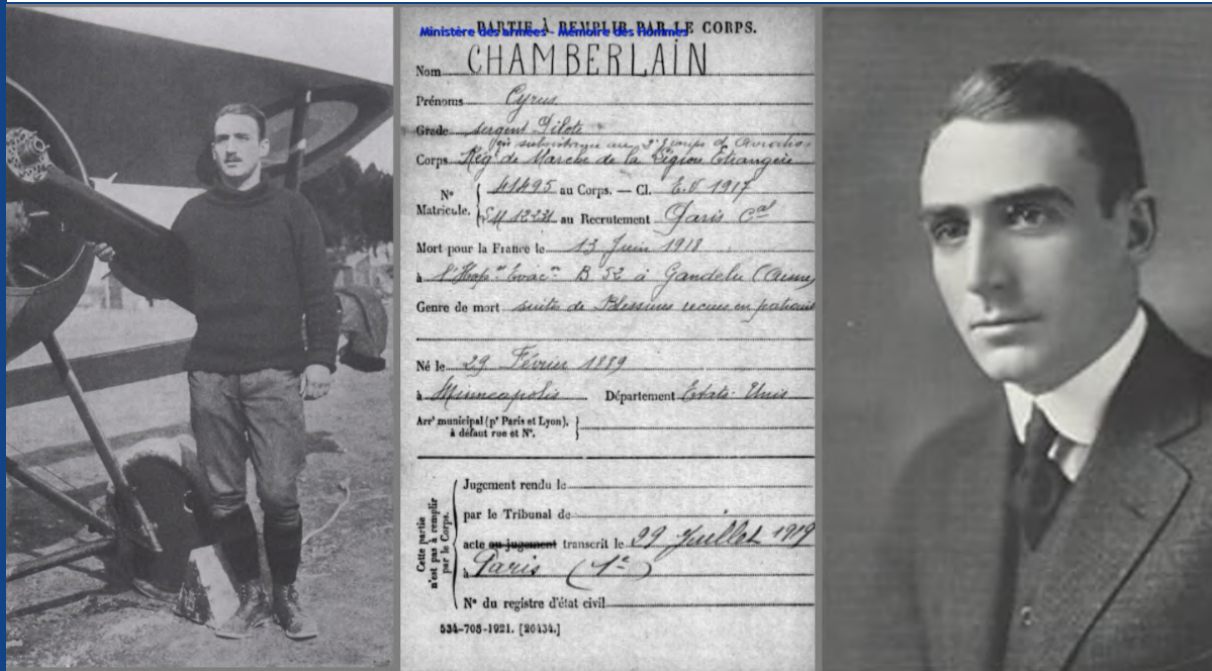 PARTIE À REMPLIR PAR LE CORPS.
Ministère des armées - Mémoire des Hommes
Nom CHAMBERLAIN
Prénoms Cyrus
Grade Sergent Pilote
au 2e groupe d'Aviation
Corps Rég. de Marche de la Légion Etrangère
N° Matricule. { 41495 au Corps. — Cl. E.V. 1917
au Recrutement Paris Cal
Mort pour la France le 13 Juin 1918
à l'Hop. Evac. B 52 à Gandelu (Aisne)
Genre de mort suites de Blessures recues en patrouille
Né le 29 Février 1889
à Minneapolis Département Etats-Unis
Arrt municipal (pr Paris et Lyon), à défaut rue et N°. }
Cette partie n'est pas à remplir par le Corps.
Jugement rendu le
par le Tribunal de
acte ou jugement transcrit le 29 Juillet 1919
à Paris (1e)
N° du registre d'état civil
534-708-1921. [26434.]